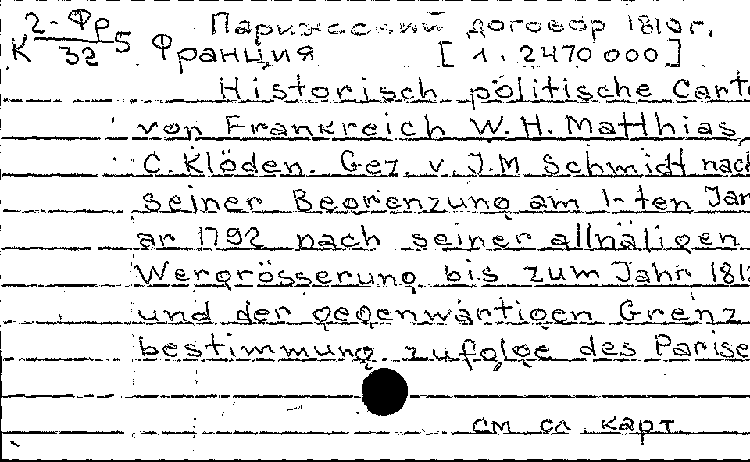 К 2-Фр/32 5 Парижский договор 1810г.
Франция [1:2470000]
Historisch politische Carte
von Frankreich W.H. Matthias,
C. Klöden. Gez. v. J.M Schmidt nach
seiner Begrenzung am 1-ten Janu
ar 1792 nach seiner allnäligen
Wergrösserung bis zum Jahr 181
und der gegenwärtigen Grenz
bestimmung zufolge des Parise
см сл. карт